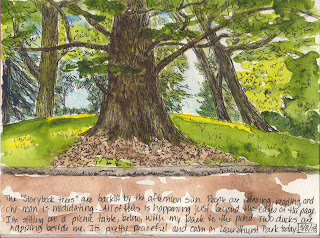 The "Storybook trees" are backlit by the afternoon sun. People are jogging, reading, and
one man is meditating. All of this is happening just beyond the edges of this page.
I'm sitting on a picnic table, being with my back to the pond. Two ducks are
napping beside me. It's pretty peaceful and calm in Laurelhurst Park today.